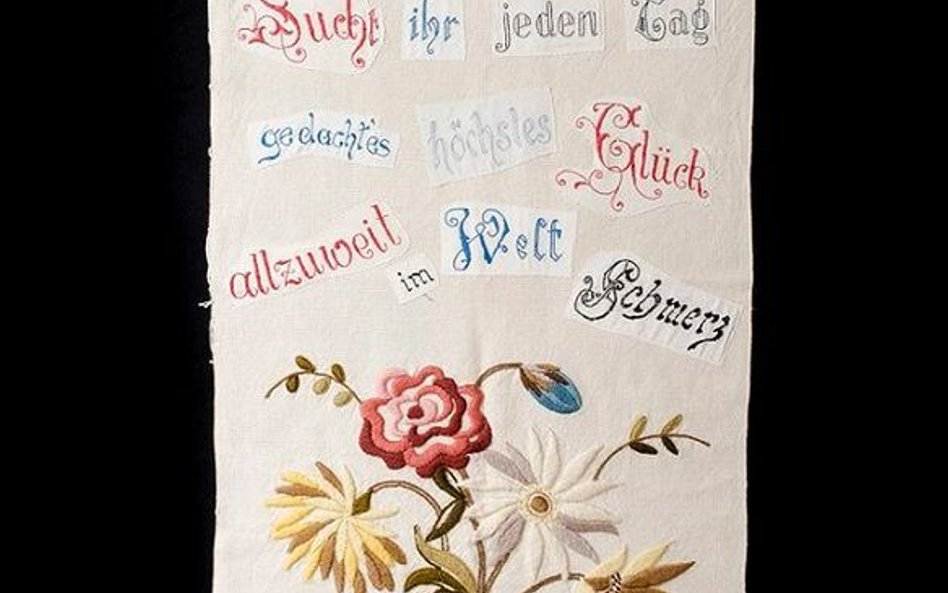 Sucht ihr jeden Tag
gedachtes höchstes Glück
allzuweit im Welt Schmerz